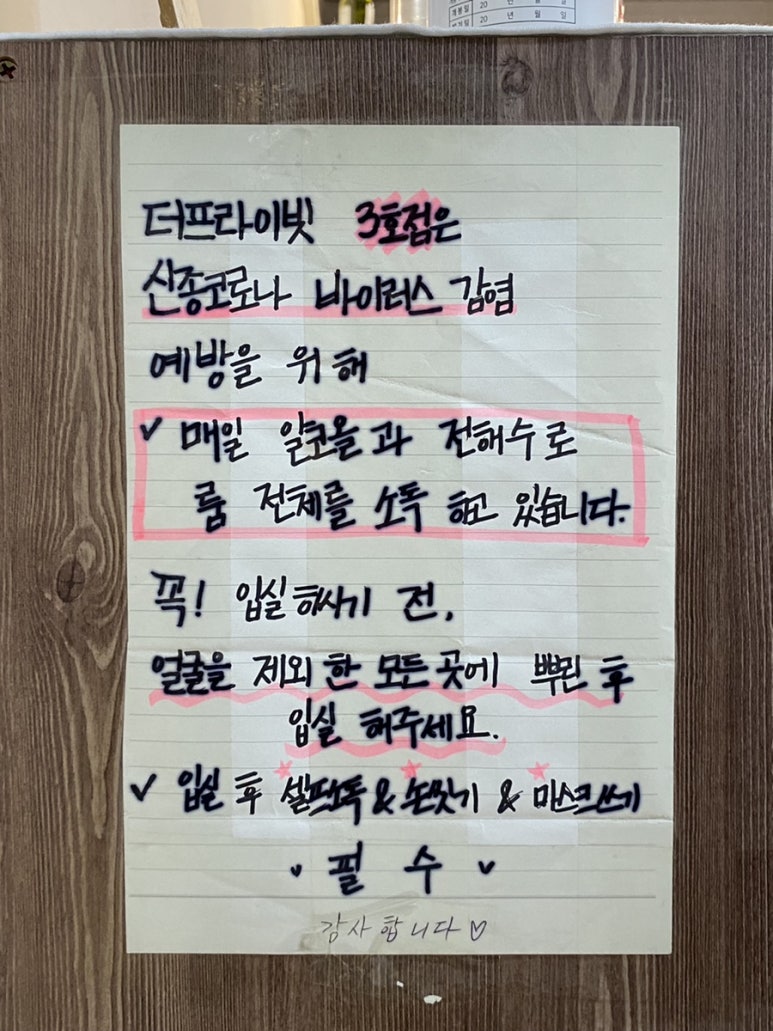 20 년 월 일
20 년 월 일
더프라이빗 3호점은
신종코로나 바이러스 감염
예방을 위해
✓ 매일 알코올과 전해수로
룸 전체를 소독 하고 있습니다.
꼭! 입실하시기 전,
얼굴을 제외 한 모든곳에 뿌린 후
입실 해주세요.
✓ 입실 후 셀프소독 & 손씻기 & 마스크쓰기
필 수
감사합니다♡